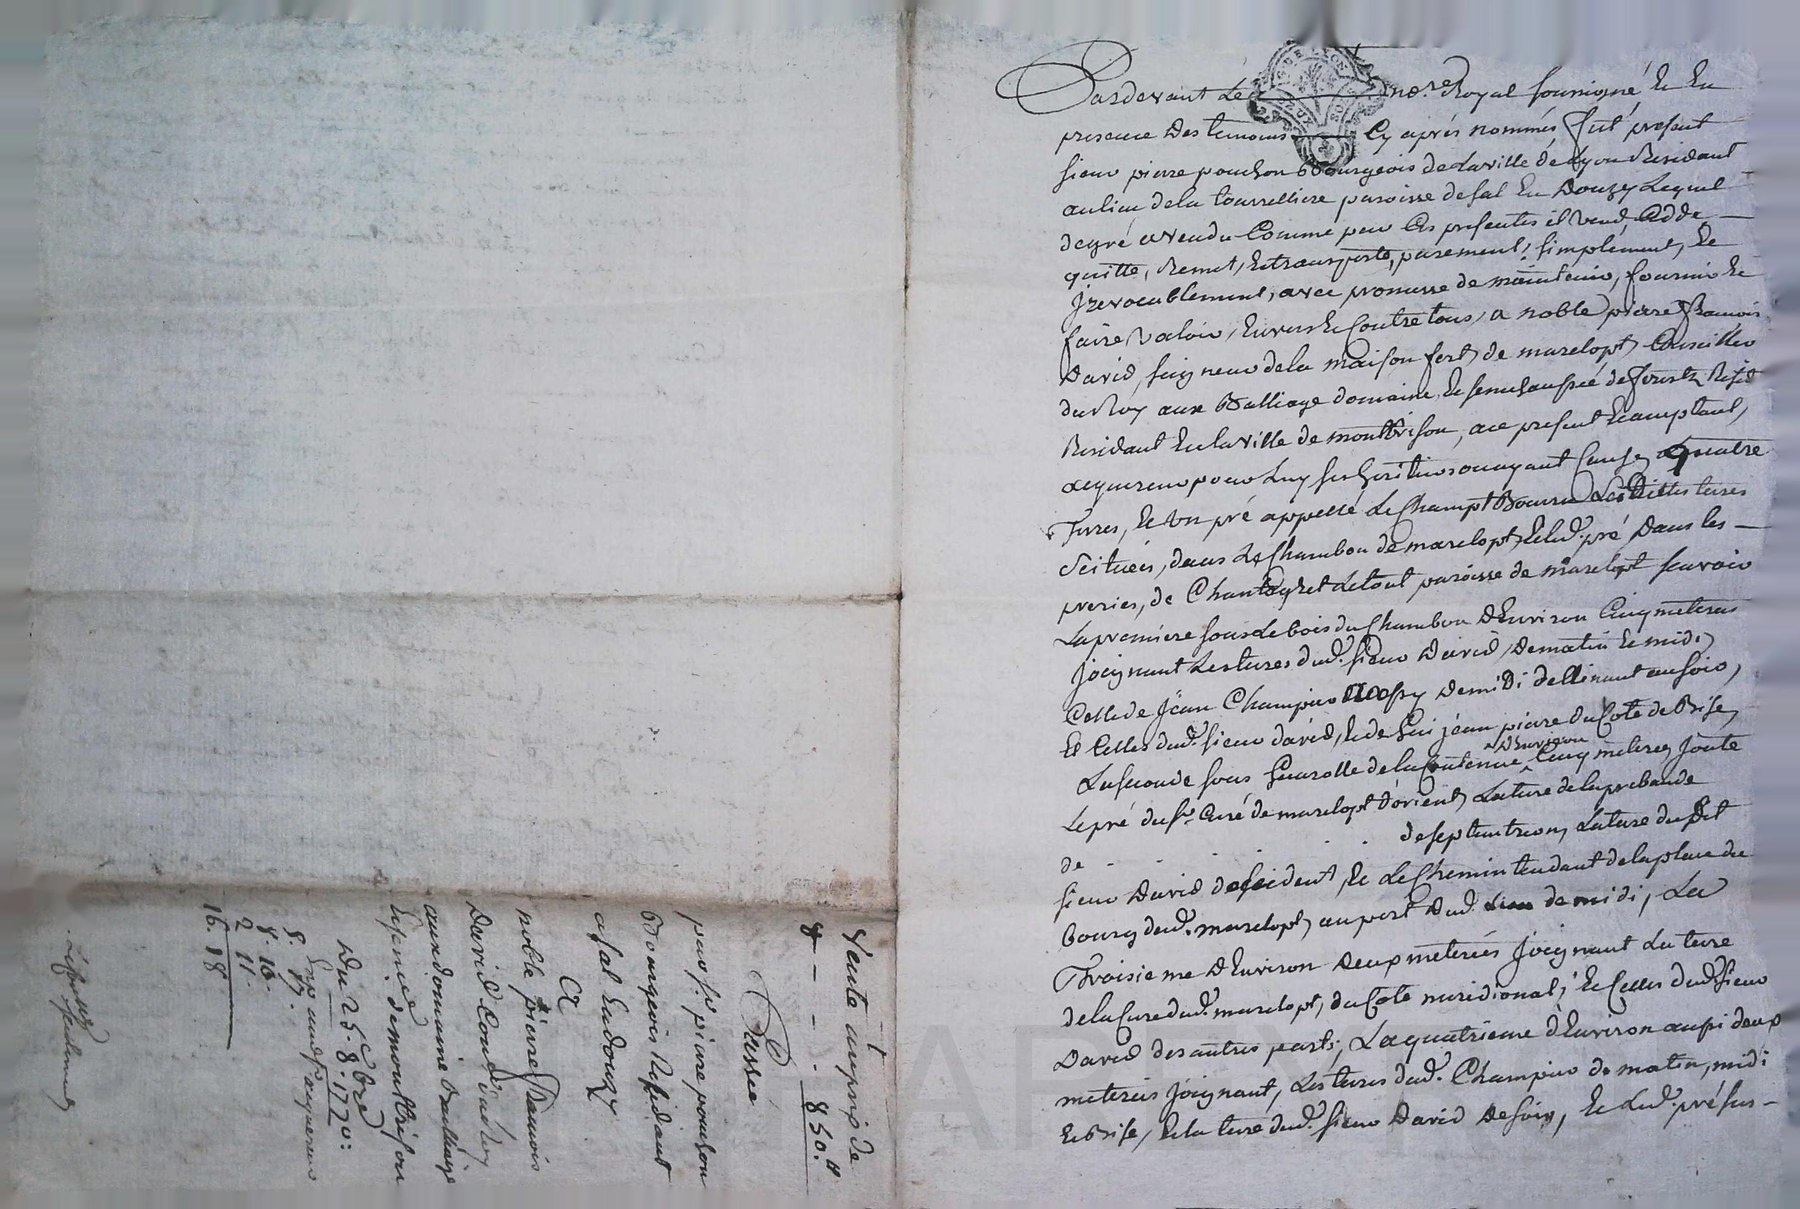 Pardevant Le no.re Royal soussigné Et En
presence Des temoins Cy aprés nommés, fut present
sieur pierre pouchon Bourgeois de Laville de Lyon Residant
au lieu de la tourrelliere paroisse de sal En Donzy Lequel
degré avendu Comme par Ces presentes il vend, Cedde
quitte, Remet, Et transporte, purement, simplement, Et
Jrrevocablement, avec promesse de maintenir, fournir Et
faire valoir, Envers Et Contre tous, a noble pierre francois
David, seigneur de la maison fort de marclopt, Conseiller
du Roy aux Bailliage domaine, Et senechaussée de forestz
Residant En la ville de montbrison, ace present Et acceptant,
acquereur pour Luy ses heritiers ou ayant Cause, quatre
Terres, Et Un pré appellé Le Champt Bourru Lesdittes terres
scituées, dans Le Chambon de marclopt, Et led. pré Dans les
preries, de Le tout paroisse de marclopt scavoir
La premiere sous Le bois du Chambon D'Environ Cinq meterées
Joignant Les terres dud. sieur David, De matin Et midi,
Celle de Jean Champier De midi declinant au soir,
Et Celles dud. sieur david, Et de jean pierre du Coté de Bise,
La seconde sous de la Contenue D'Environ Cinq meterées Joute
Le pré du sr. Curé de marclopt d'orient, La terre de la prebande
de . . . . de septentrion, La terre dudit
sieur David d'occident, Et Le Chemin tendant de la place du
bourg dud. marclopt, au port Dud. Lieu de midi, La
Troisieme D'Environ Deux meterées Joignant La terre
de la Cure dud. marclopt, du Coté meridional, Et Celles dud. sieur
David des autres parts, La quatrieme d'Environ aussi deux
meterées Joignant, Les terres dud. Champier de matin, midi
Et Bise, Et la terre dud. sieur David De soir, Et Led. pré sus-
Vente au prix de
8 - - - 850.
Passée
par sr. pierre pouchon
Bourgeois Residant
a sal En donzy
a
noble pierre francois
David Cons.er du Roy
aux domaine Bailliage
Et senec. de montbrison
Du 25. 8bre 1770:
acquereur
8. 17.
8. 16.
2. 11.
16. 18